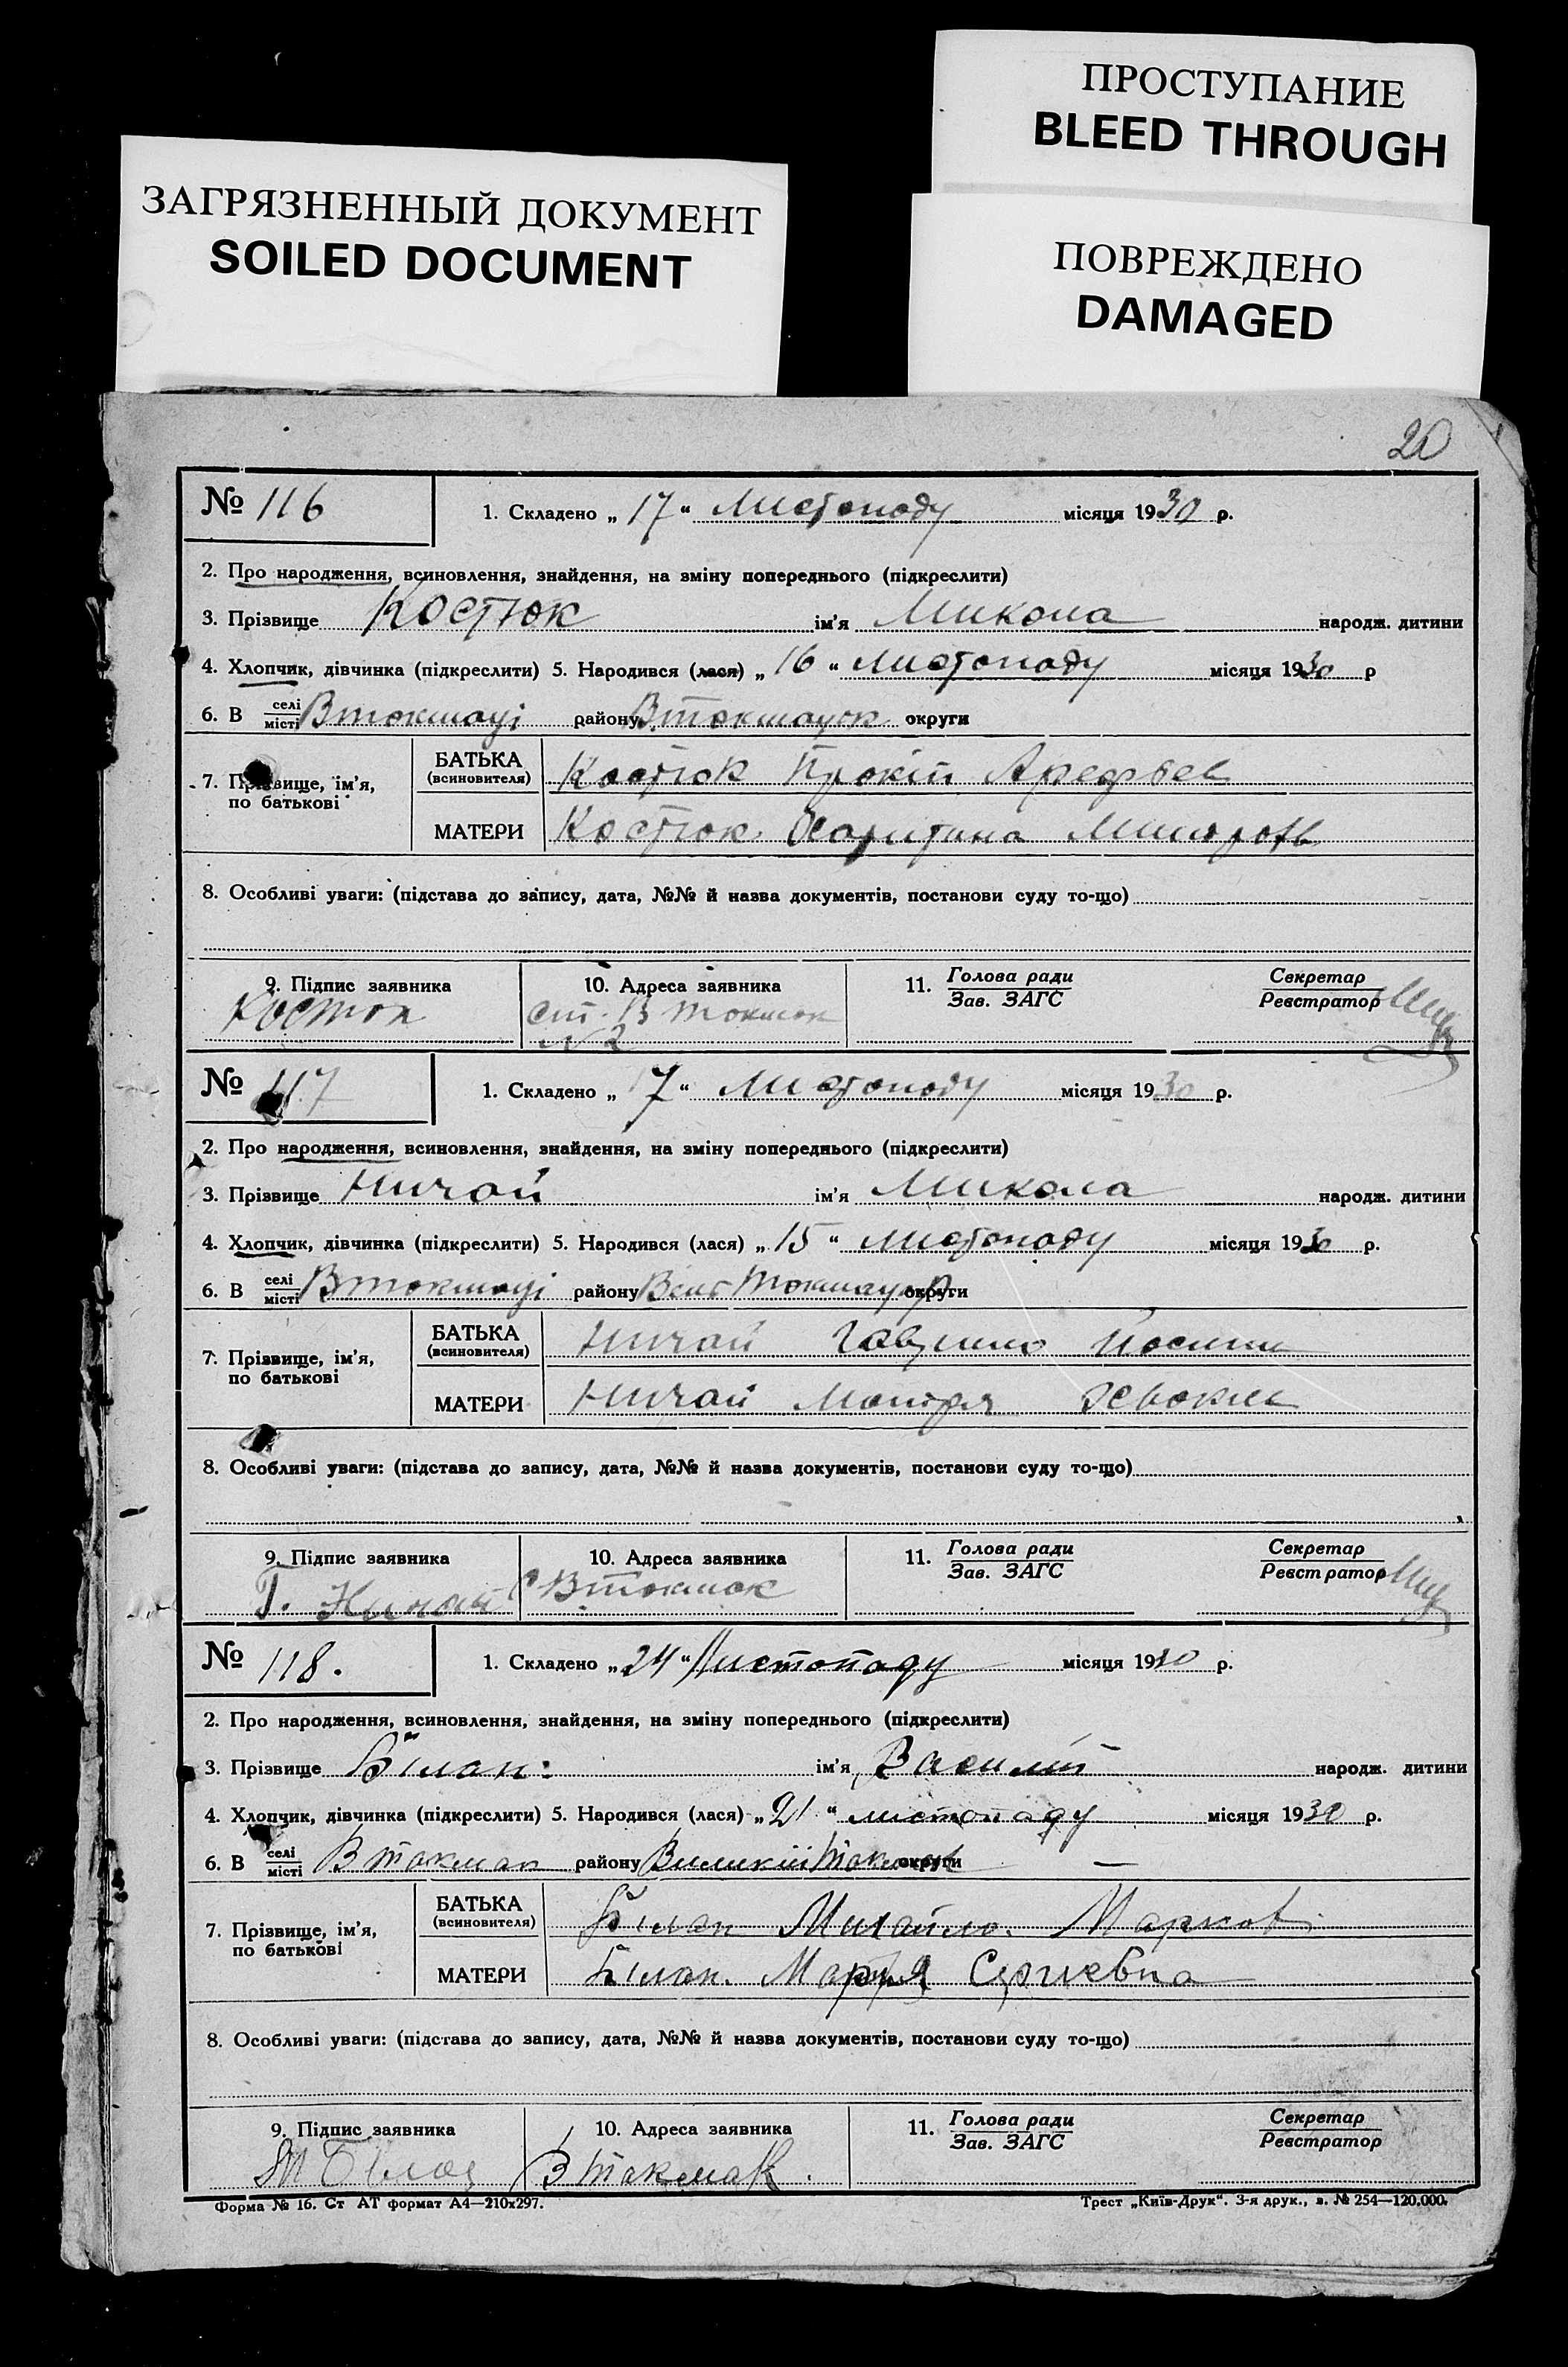 ПРОСТУПАНИЕ
BLEED THROUGH
ЗАГРЯЗНЕННЫЙ ДОКУМЕНТ
SOILED DOCUMENT
ПОВРЕЖДЕНО
DAMAGED
20
№ 116 1. Складено „ 17 “ Листопаду місяця 1930 р.
2. Про народження, всиновлення, знайдення, на зміну попереднього (підкреслити)
3. Прізвище Костюк ім'я Микола народж. дитини
4. Хлопчик, дівчинка (підкреслити) 5. Народився (лася) „ 16 “ листопаду місяця 1930 р
6. В селі місті Втокмаці району Втокмацьк округи
7. Прізвище, ім'я, по батькові БАТЬКА (всиновителя) Костюк Прокіп Арефьев
МАТЕРИ Костюк Харитина
8. Особливі уваги: (підстава до запису, дата, №№ й назва документів, постанови суду то-що)
9. Підпис заявника 10. Адреса заявника 11. Голова ради Зав. ЗАГС Секретар Реєстратор
Костюк ст. В Токмак
№ 2
№ 117 1. Складено „ 17 “ Листопаду місяця 1930 р.
2. Про народження, всиновлення, знайдення, на зміну попереднього (підкреслити)
3. Прізвище Ничай ім'я Микола народж. дитини
4. Хлопчик, дівчинка (підкреслити) 5. Народився (лася) „ 15 “ листопаду місяця 1930 р.
6. В селі місті Втокмаці району округи
7. Прізвище, ім'я, по батькові БАТЬКА (всиновителя) Ничай Гаврило Йосипов
МАТЕРИ Ничай Мотря
8. Особливі уваги: (підстава до запису, дата, №№ й назва документів, постанови суду то-що)
9. Підпис заявника 10. Адреса заявника 11. Голова ради Зав. ЗАГС Секретар Реєстратор
Г. Ничай с Втокмак
№ 118. 1. Складено „ 24 “ Листопаду місяця 1930 р.
2. Про народження, всиновлення, знайдення, на зміну попереднього (підкреслити)
3. Прізвище Білан ім'я Василій народж. дитини
4. Хлопчик, дівчинка (підкреслити) 5. Народився (лася) „ 21 “ листопаду місяця 1930 р.
6. В селі місті В Такмак району округи —
7. Прізвище, ім'я, по батькові БАТЬКА (всиновителя) Білан Михайло Марков
МАТЕРИ Білан Марія Сергиевна
8. Особливі уваги: (підстава до запису, дата, №№ й назва документів, постанови суду то-що)
9. Підпис заявника 10. Адреса заявника 11. Голова ради Зав. ЗАГС Секретар Реєстратор
М Білан В Такмак.
Форма № 16. Ст АТ формат А4—210х297. Трест „Київ-Друк“. 3-я друк., з. № 254—120.000.